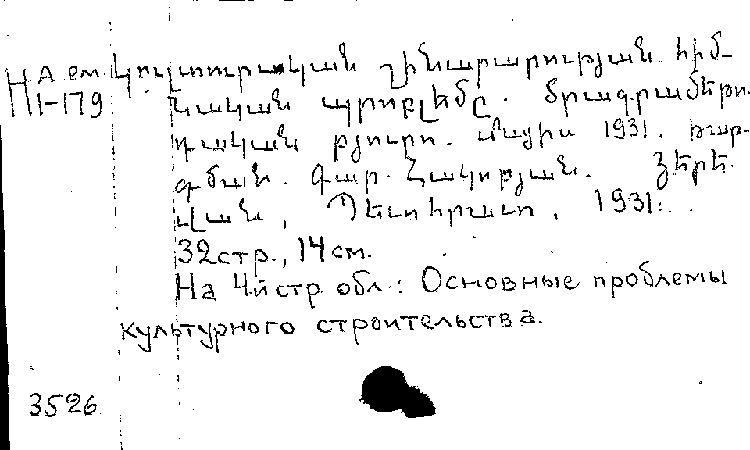 На ем Կուլտուրական շինարարության հիմ-
1-179 նական պրոբլեմը. Ծրագրամեթո-
դական բյուրո. մայիս 1931. թար-
գման. Գար. Հակոբյան. Յերե-
վան, Պետհրատ, 1931.
32стр., 14см.
На 4й стр обл.: Основные проблемы
культурного строительства.
3526